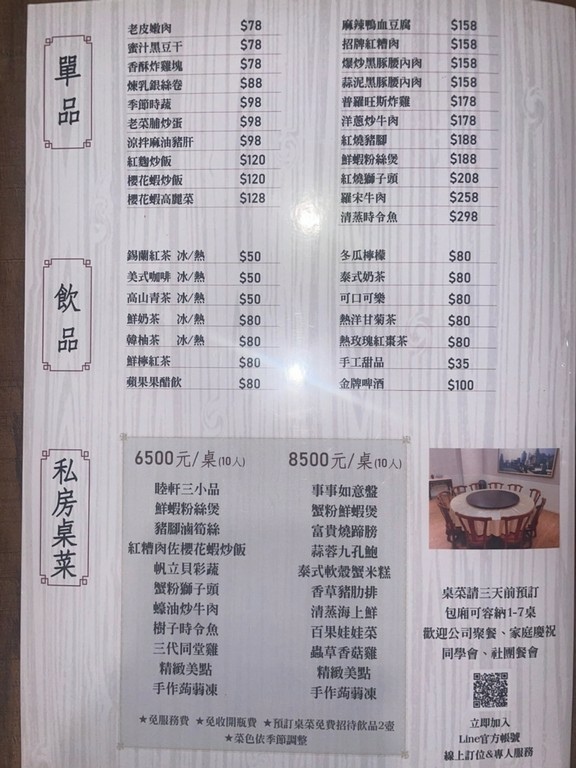 單品
老皮嫩肉 $78
蜜汁黑豆干 $78
香酥炸雞塊 $78
煉乳銀絲卷 $88
季節時蔬 $98
老菜脯炒蛋 $98
涼拌麻油豬肝 $98
紅麴炒飯 $120
櫻花蝦炒飯 $120
櫻花蝦高麗菜 $128
麻辣鴨血豆腐 $158
招牌紅糟肉 $158
爆炒黑豚腰內肉 $158
蒜泥黑豚腰內肉 $158
普羅旺斯炸雞 $178
洋蔥炒牛肉 $178
紅燒豬腳 $188
鮮蝦粉絲煲 $188
紅燒獅子頭 $208
羅宋牛肉 $258
清蒸時令魚 $298
飲品
錫蘭紅茶 冰/熱 $50
美式咖啡 冰/熱 $50
高山青茶 冰/熱 $50
鮮奶茶 冰/熱 $80
韓柚茶 冰/熱 $80
鮮檸紅茶 $80
蘋果果醋飲 $80
冬瓜檸檬 $80
泰式奶茶 $80
可口可樂 $80
熱洋甘菊茶 $80
熱玫瑰紅棗茶 $80
手工甜品 $35
金牌啤酒 $100
私房桌菜
6500元/桌(10人)
睦軒三小品
鮮蝦粉絲煲
豬腳滷筍絲
紅糟肉佐櫻花蝦炒飯
帆立貝彩蔬
蟹粉獅子頭
蠔油炒牛肉
樹子時令魚
三代同堂雞
精緻美點
手作蒟蒻凍
8500元/桌(10人)
事事如意盤
蟹粉鮮蝦煲
富貴燒蹄膀
蒜蓉九孔鮑
泰式軟殼蟹米糕
香草豬肋排
清蒸海上鮮
百果娃娃菜
蟲草香菇雞
精緻美點
手作蒟蒻凍
★免服務費 ★免收開瓶費 ★預訂桌菜免費招待飲品2壺
★菜色依季節調整
桌菜請三天前預訂
包廂可容納1-7桌
歡迎公司聚餐、家庭慶祝
同學會、社團餐會
立即加入
Line官方帳號
線上訂位&專人服務